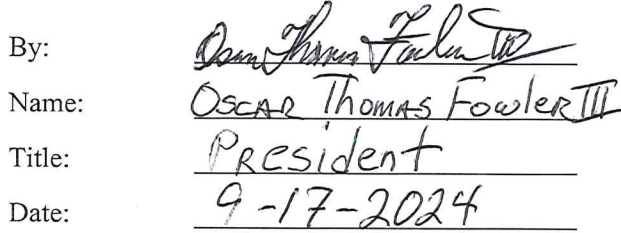 By: Oscar Thomas Fowler III
Name: Oscar Thomas Fowler III
Title: President
Date: 9-17-2024